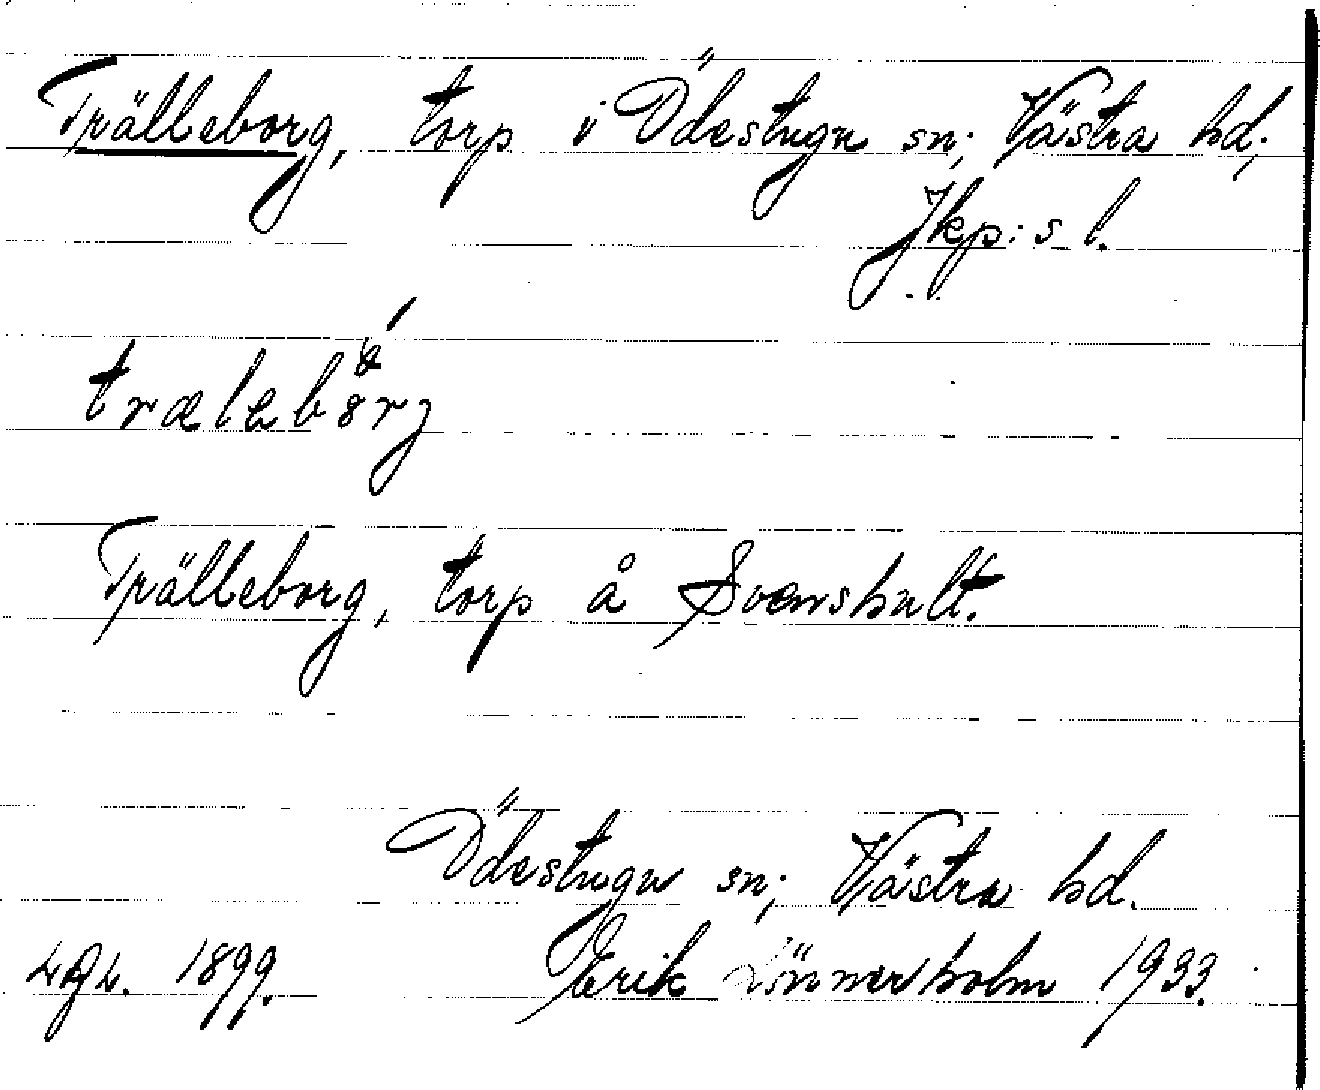 Trälleborg, torp i Ödestugu sn; Västra hd;
Jkp:s l.
Trälleborg, torp å Svenshult.
Ödestugu sn; Västra hd.
1899. Erik Lönnerholm 1933.